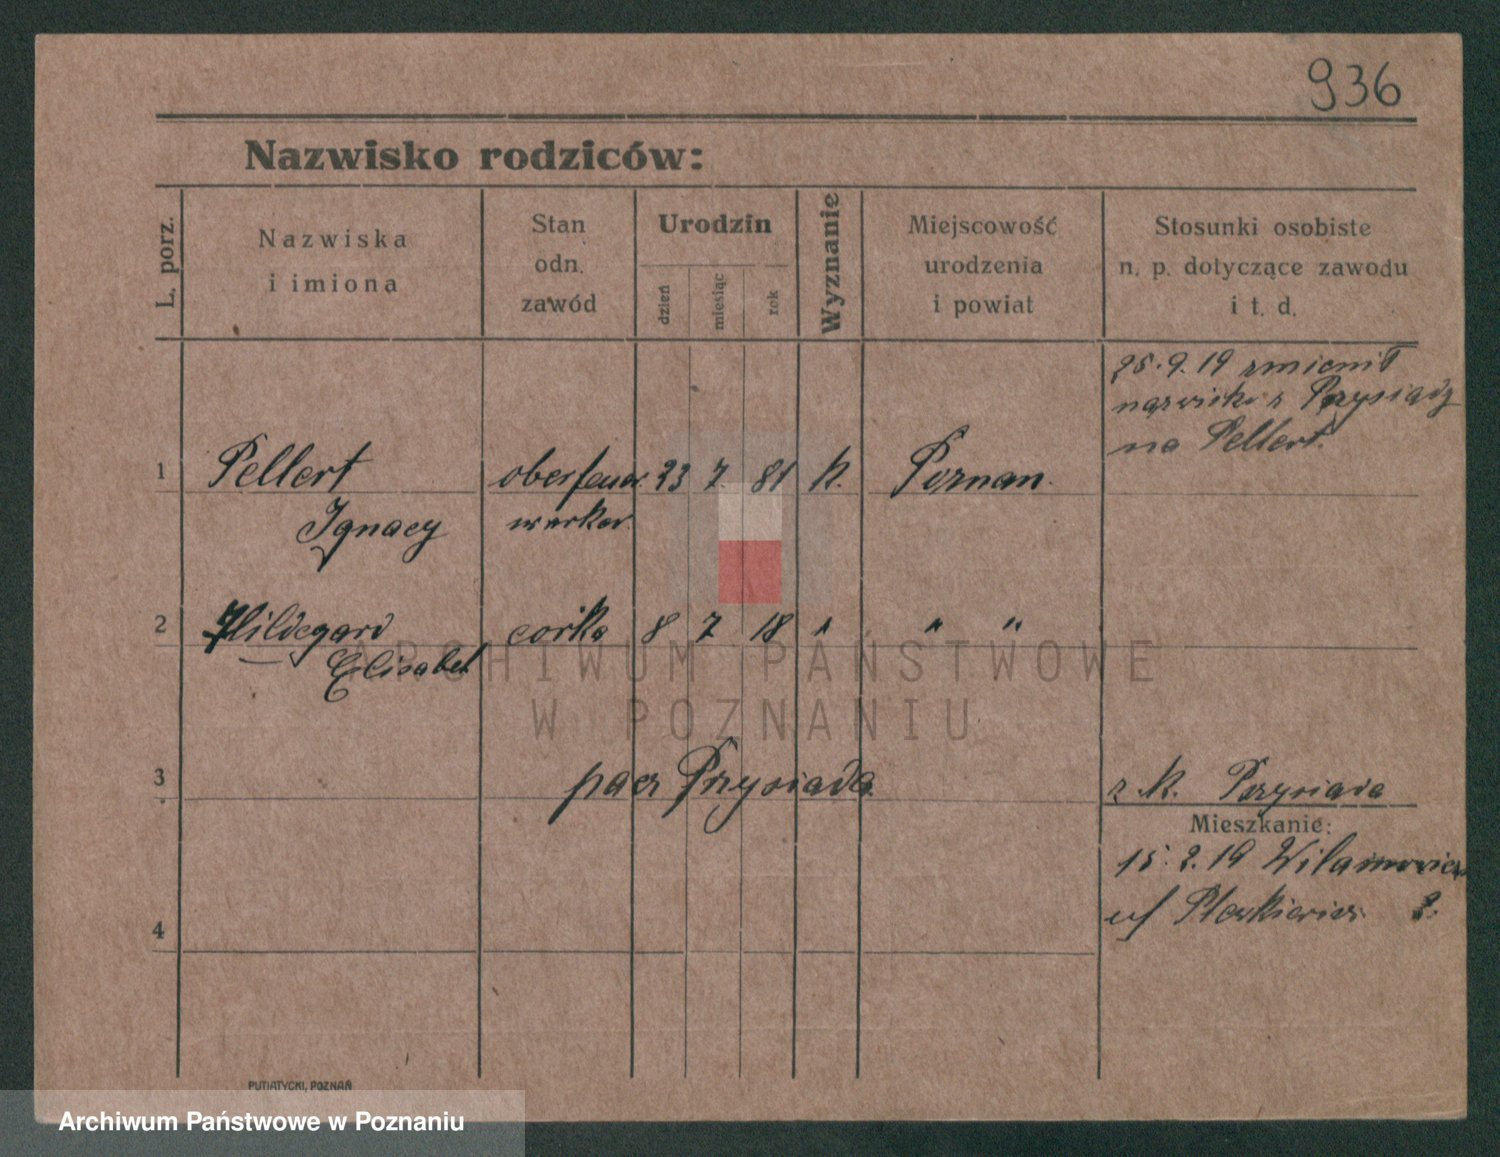 936
Nazwisko rodziców:
L. porz.
Nazwiska
i imiona
Stan
odn.
zawód
Urodzin
dzień
miesiąc
rok
Wyznanie
Miejscowość
urodzenia
i powiat
Stosunki osobiste
n. p. dotyczące zawodu
i t. d.
25.9.19 zmienił
nazwisko z Przysiady
na Pellert.
1 Pellert oberfeuer 23 7 81 k. Poznan.
Ignacy werker.
2 Hildegard corka 8 7 18 " " "
Elisabet
ARCHIWUM PAŃSTWOWE
W POZNANIU
3 pacz Przysiada z k. Przysiada
Mieszkanie:
15.2.19
4
PUTIATYCKI, POZNAŃ
Archiwum Państwowe w Poznaniu